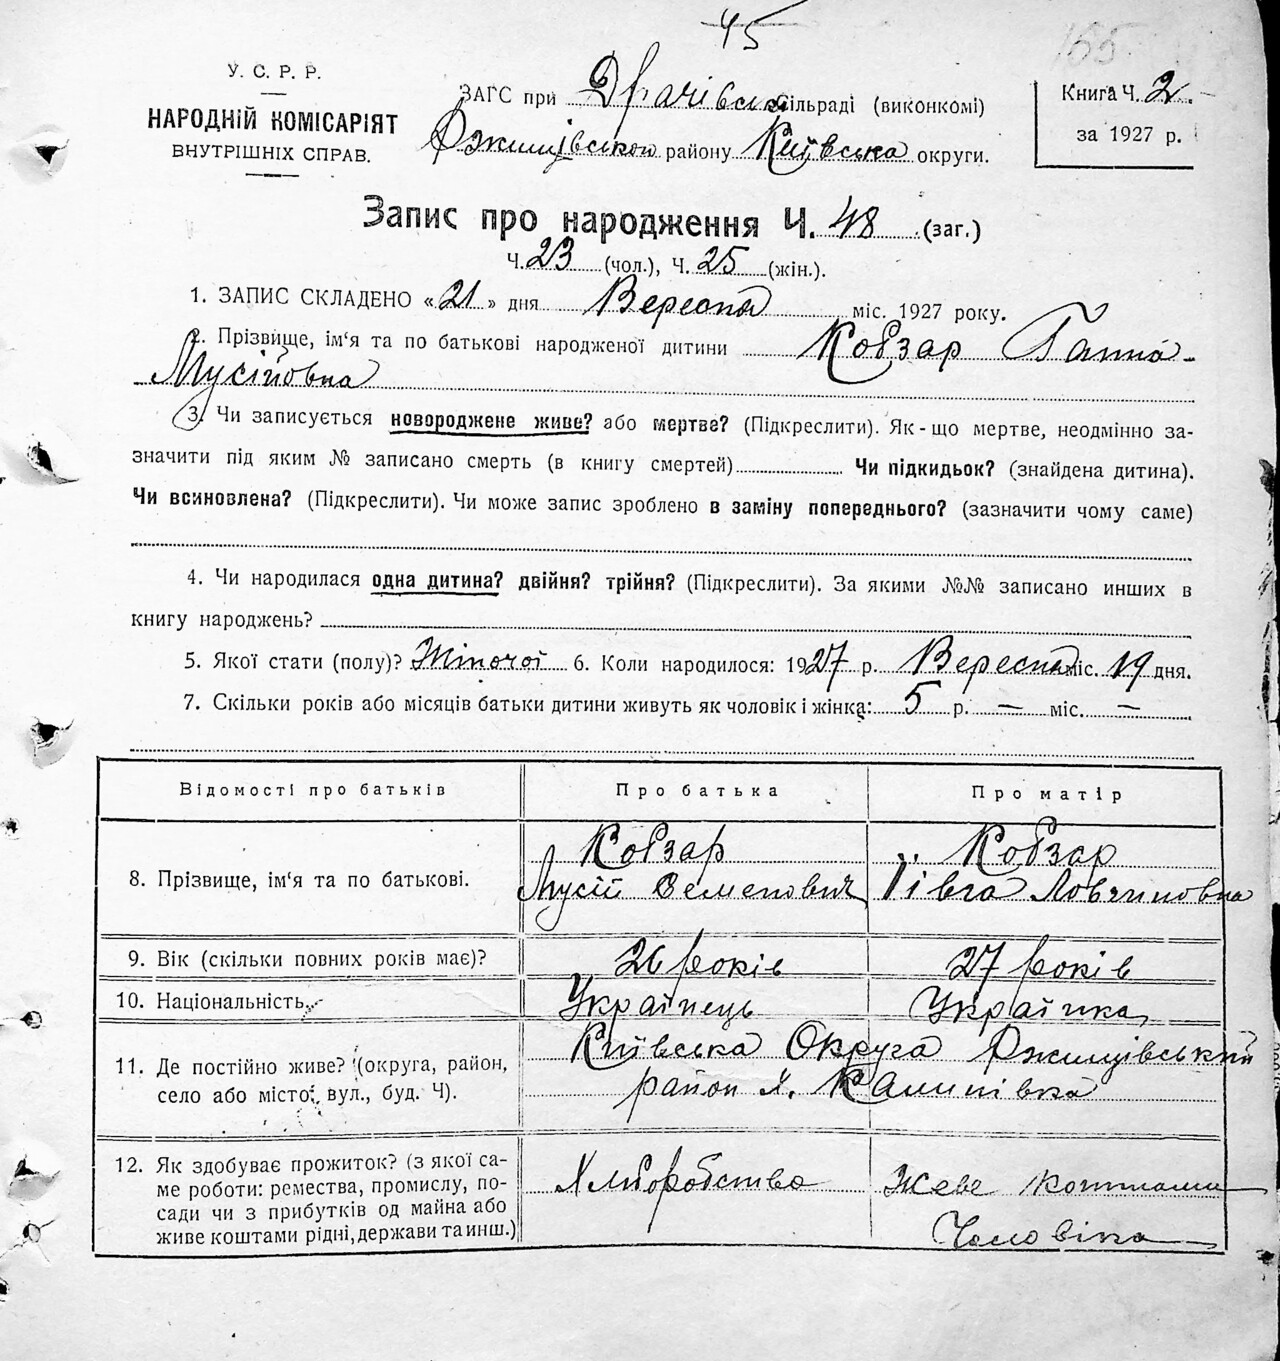 45
155
У. С. Р. Р.
НАРОДНІЙ КОМІСАРІЯТ
ВНУТРІШНІХ СПРАВ.
ЗАГС при Драчівськ сільраді (виконкомі)
Ржищівськом району Київська округи.
Книга Ч. 2.
за 1927 р.
Запис про народження Ч. 48 (заг.)
Ч. 23 (чол.), Ч. 25 (жін.).
1. ЗАПИС СКЛАДЕНО «21» дня Вересня міс. 1927 року.
2. Прізвище, ім'я та по батькові народженої дитини Кобзар Ганна
Мусіївна
3. Чи записується новороджене живе? або мертве? (Підкреслити). Як-що мертве, неодмінно за-
значити під яким № записано смерть (в книгу смертей) Чи підкидьок? (знайдена дитина).
Чи всиновлена? (Підкреслити). Чи може запис зроблено в заміну попереднього? (зазначити чому саме)
4. Чи народилася одна дитина? двійня? трійня? (Підкреслити). За якими №№ записано инших в
книгу народжень?
5. Якої стати (полу)? Жіночої 6. Коли народилося: 1927 р. Вересня міс. 19 дня.
7. Скільки років або місяців батьки дитини живуть як чоловік і жінка: 5 р. — міс. —
Відомості про батьків Про батька Про матір
8. Прізвище, ім'я та по батькові. Кобзар Мусій Семенович Кобзар Ївга
9. Вік (скільки повних років має)? 26 років 27 років
10. Національність. Українець Українка
11. Де постійно живе? (округа, район, Київська Округа Ржищівський
село або місто, вул., буд. Ч). район х. Калинівка
12. Як здобуває прожиток? (з якої са-
ме роботи: ремества, промислу, по- Хліборобство Жеве коштами
сади чи з прибутків од майна або
живе коштами рідні, держави та инш.) Чоловіка